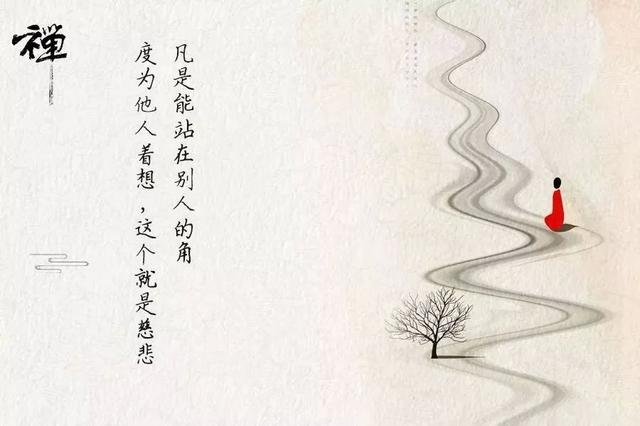 禅
凡是能站在别人的角
度为他人着想，这个就是慈悲